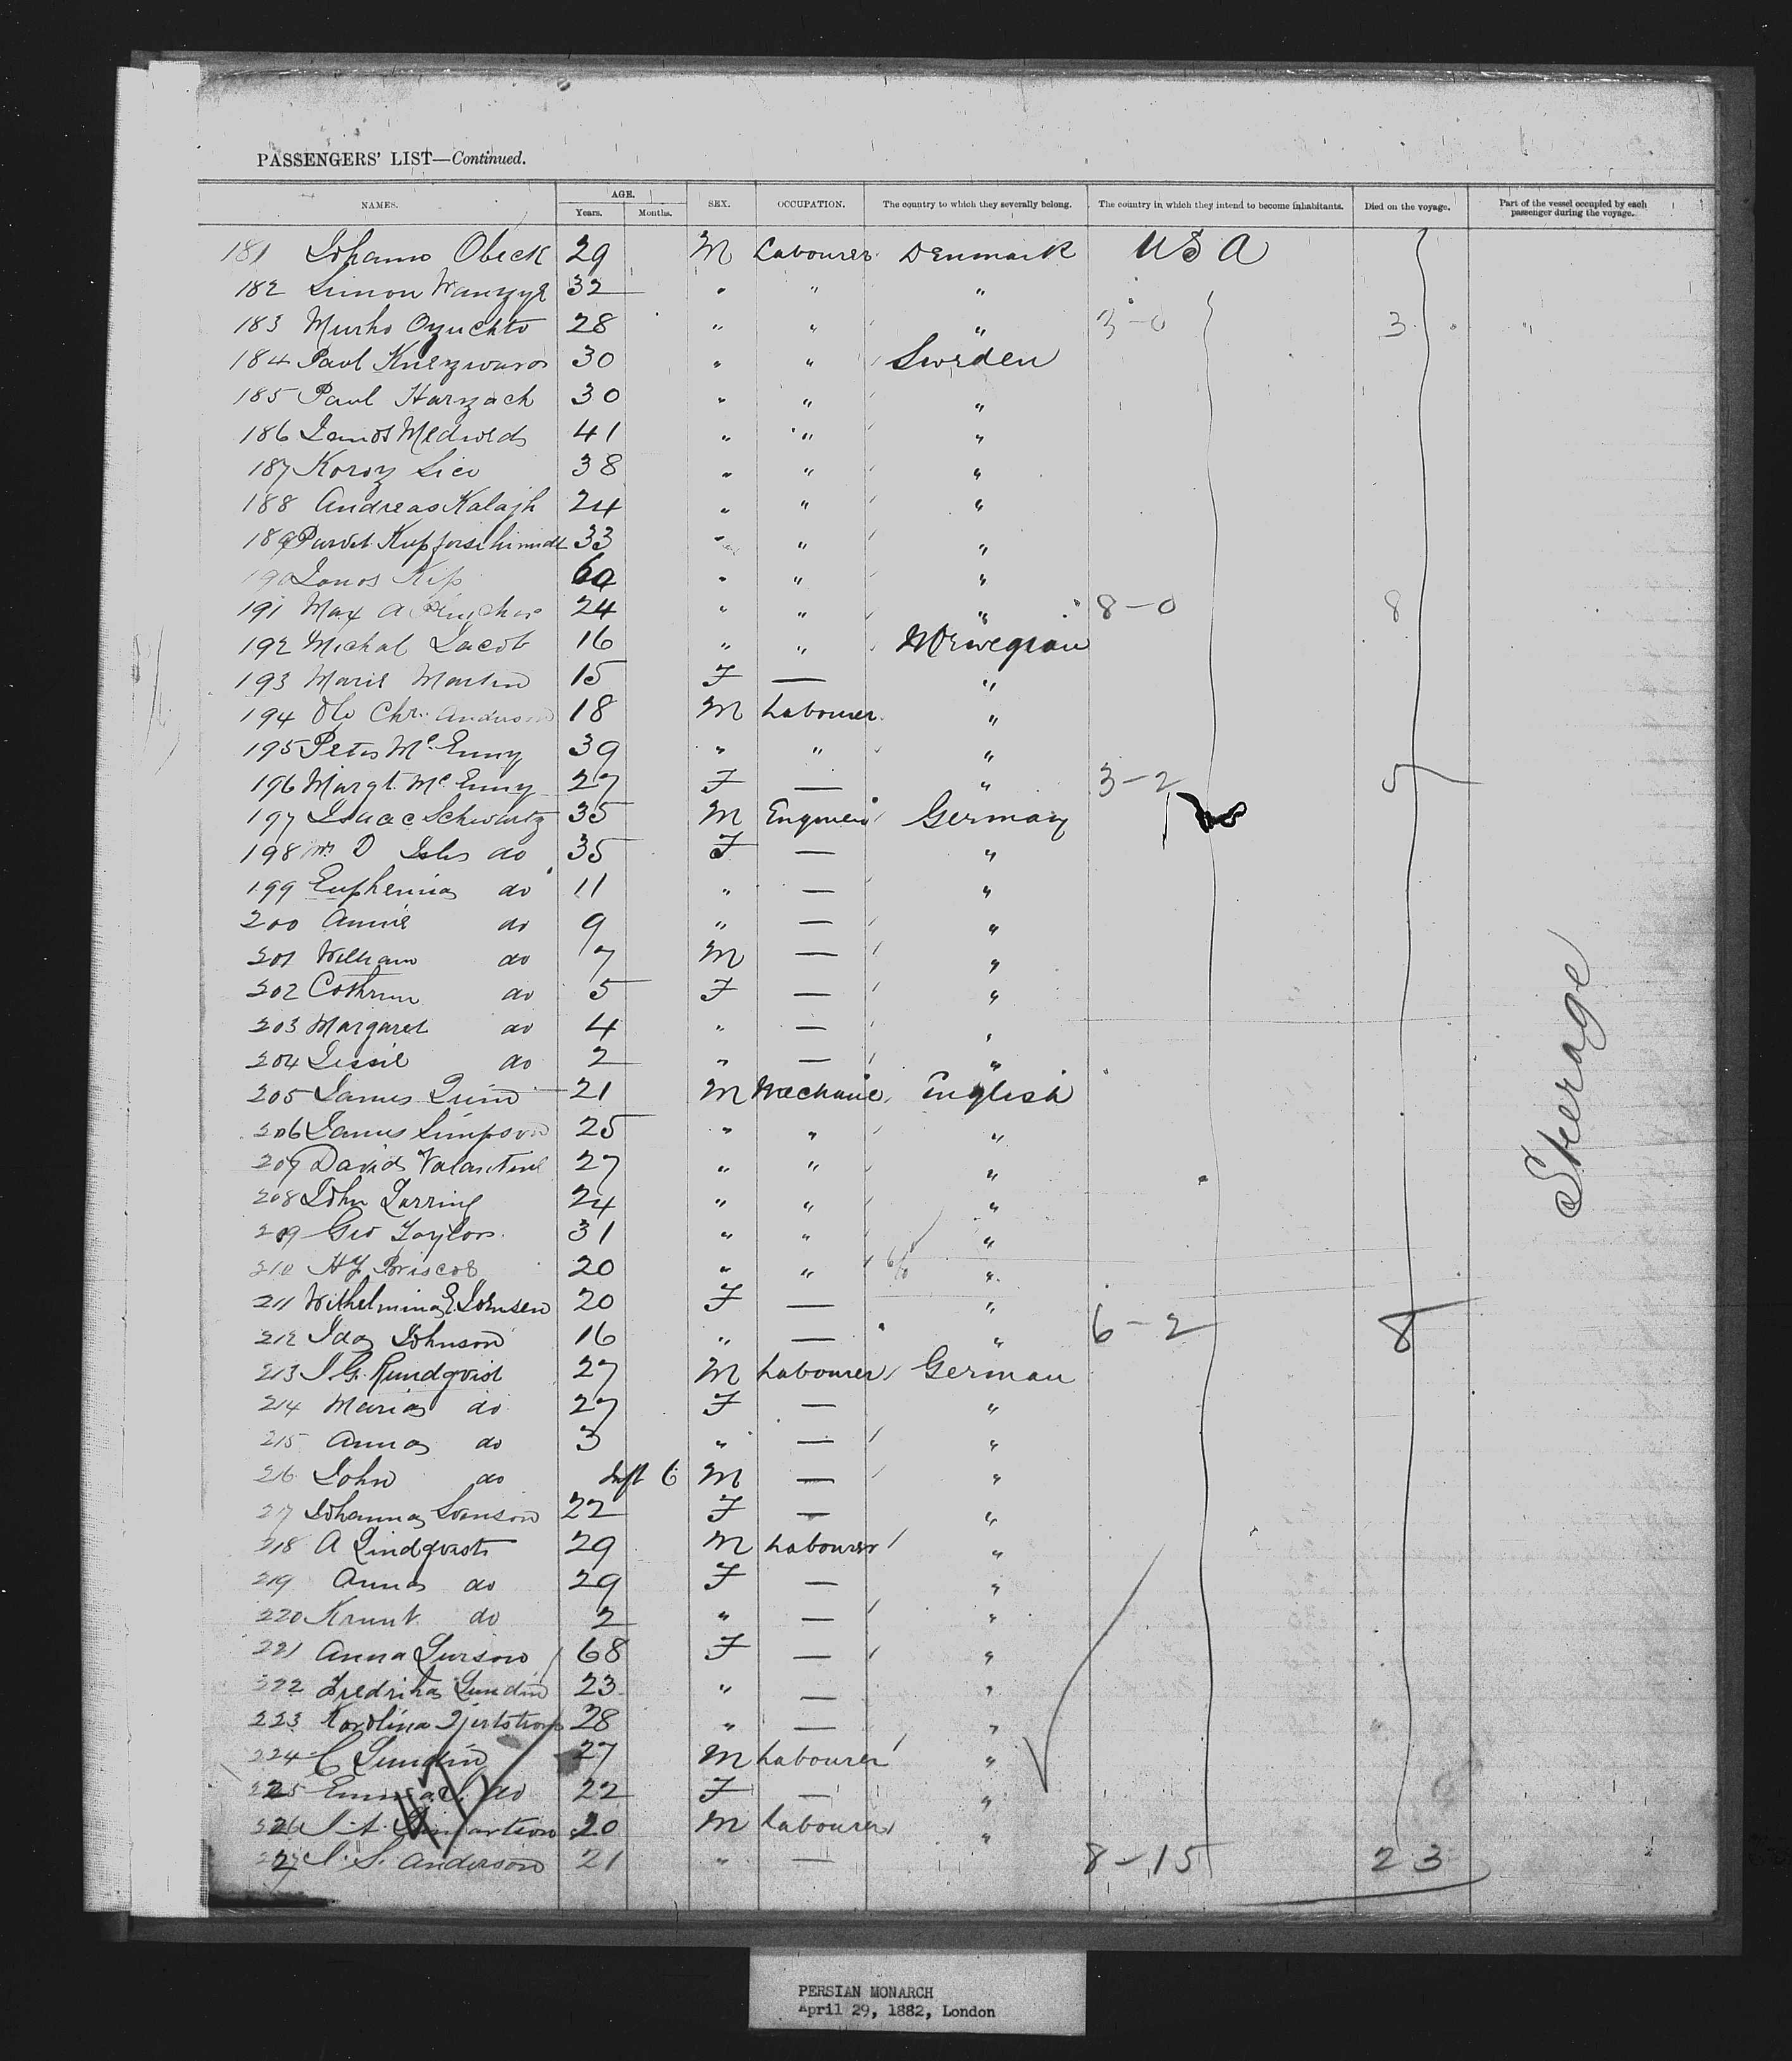 PASSENGERS' LIST—Continued.
NAMES. AGE. Years. Months. SEX. OCCUPATION. The country to which they severally belong. The country in which they intend to become inhabitants. Died on the voyage. Part of the vessel occupied by each passenger during the voyage.
181 Johann Obeck 29 M Labourer Denmark USA
182 Simon 32 " " "
183 28 " " " 3-0 3
184 Paul 30 " " Sweden
185 Paul Harzach 30 " " "
186 Janos 41 " " "
187 38 " " "
188 Andreas Kalajh 24 " " "
189 Kupferschimidt 33 " " "
190 Janos Kip 60 " " "
191 Max A 24 " " " 8-0 8
192 Michal Jacob 16 " " Norwegian
193 Marie Martin 15 F — "
194 Ole Chr. Anderson 18 M Labourer "
195 Peter McEnny 39 " " "
196 Margt. McEnny 27 F — " 3-2 5
197 Isaac Schwartz 35 M Engineer Germany
198 Mrs D do 35 F — "
199 Euphemia do 11 " — "
200 Annie do 9 " — "
201 William do 7 M — "
202 do 5 F — "
203 Margaret do 4 " — "
204 Jessie do 2 " — "
205 James Quinn 21 M Mechanic English
206 James Simpson 25 " " "
207 David Valantine 27 " " "
208 John 24 " " "
209 Geo Taylor 31 " " "
210 Hy Briscoe 20 " " "
211 Wilhelmina E Johnsen 20 F — "
212 Ida Johnson 16 " — " 6-2 8
213 J. G. Rundqvist 27 M Labourer German
214 Maria do 27 F — "
215 Anna do 3 " — "
216 John do Inft 6 M — "
217 Johanna Svenson 22 F — "
218 A Lindqvist 29 M Labourer "
219 Anna do 29 F — "
220 do 2 " — "
221 Anna Larson 68 F — "
222 Fredrika Lundin 23 " — "
223 Karolina 28 " — "
224 C Lundin 27 M Labourer "
225 Emma C. do 22 F — "
226 20 M Labourer "
227 J. S. Anderson 21 " — 8-15 23
Steerage
PERSIAN MONARCH
April 29, 1882, London